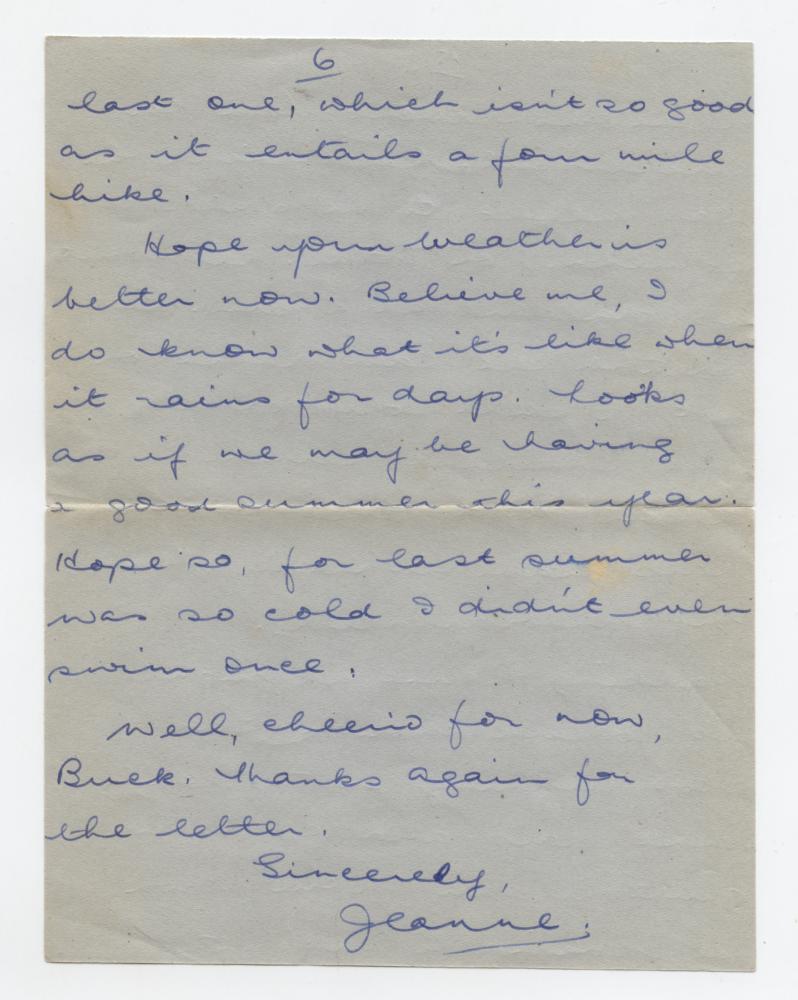 6
last one, which isn't so good
as it entails a four mile
hike.
Hope your weather is
better now. Believe me, I
do know what it's like when
it rains for days. Looks
as if we may be having
a good summer this year.
Hope so, for last summer
was so cold I didn't even
swim once.
Well, cheerio for now,
Buck. Thanks again for
the letter.
Sincerely,
Jeanne.